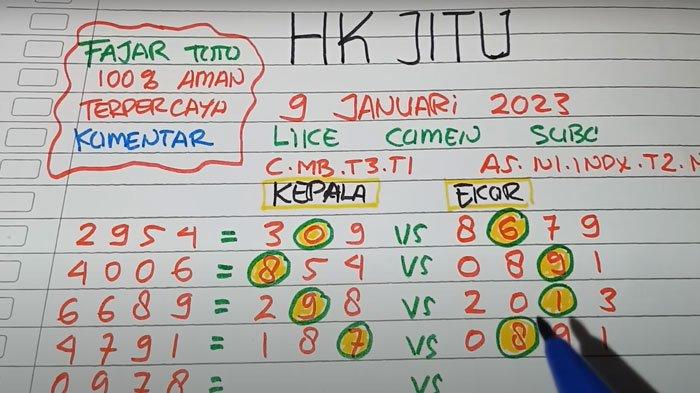 HK JITU
FAJAR TOTO
100% AMAN
TERPERCAYA
KOMENTAR
9 JANUARI 2023
LIKE COMEN SUBC
C.MB.T3.T1 AS.N1.INDX.T2.N
KEPALA EKOR
2954 = 309 VS 8679
4006 = 854 VS 0891
6689 = 298 VS 2013
4791 = 187 VS 0891
0978 = VS